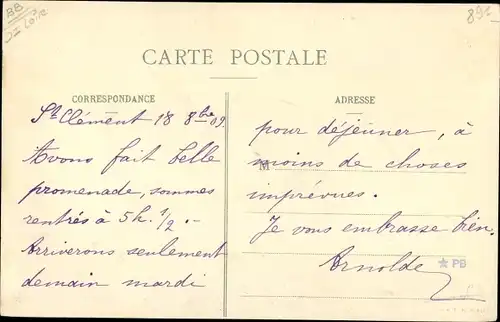 BB
89-
CARTE POSTALE
CORRESPONDANCE
St Clément 18 8bre 09.
Avons fait belle
promenade, sommes
rentrés à 5h. 1/2 . -
Arriverons seulement
demain mardi
ADRESSE
pour déjeuner, à
M moins de choses
imprévues.
Je vous embrasse bien.
Arnolde
★ PB